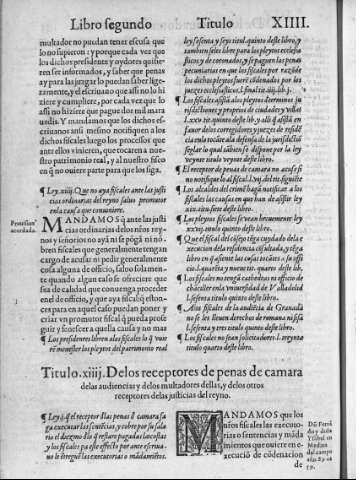 Libro segundo Titulo XIIII.
multador no puedan tener escusa que
lo no supieron: y porque cada vez que
los dichos presidente y oydores quisie-
ren ser informados, y saber que penas
ay para las juzgar lo puedan saber lige-
ramente, y el escriuano que assi no lo hi
ziere y cumpliere, por cada vez que lo
assi no hiziere que pague dos mil mara
uedis. Y mandamos que los dichos es-
criuanos assi mesmo notifiquen a los
dichos fiscales luego los processos que
ante ellos vinieren, que tocaren a nue-
stro patrimonio real, y al nuestro fisco
en q̃ no ouiere parte que los siga.
¶ Ley .xiiij. Que no aya fiscales ante las justi
cias ordinarias del reyno saluo promotor
en la causa que conuiniere.
Petición
acordada.
MANDAMOS q̃ ante las justi
cias ordinarias delos nr̃os rey-
nos y señorios no aya ni se pōga ni nō-
bren fiscales que generalmente tengan
cargo de acusar ni pedir generalmente
cosa alguna de officio, saluo solamen-
te quando algun caso se ofreciere que
sea de calidad que conuenga proceder
en el de officio, y que aya fiscal: q̃ estō-
ces para en aquel caso puedan poner y
criar vn promotor fiscal q̃ pueda prose
guir y fenescer aquella causa y no mas
¶ Los presidentes libren alos fiscales lo q̃ vuie
rē menester los pleytos del patrimonio real
ley sesenta y seys titul. quinto deste libro, y
tambien se les libre para los pleytos ecclesia
sticos y de coronados, y se paguen las penas
pecuniarias en que los fiscales por razō de
los dichos pleytos fuerē cōdenados por los
juezes ecclesiasticos.l. final ti.iiij.lib.j.
¶ Los fiscales assistā alos pleytos
l.xxiv tit. quinto deste lib. y
fauor delos corregidores y juezes de residē
cia en lo tocāte ala defensa de la jurisdictiō
seglar lo qual tābien se dispone por la ley
veynte titulo veynte deste libro.
¶ El receptor de penas de camara no acuse si
no notifique lo al fiscal.l.vij. del tit. siguiēte
¶ Los alcaldes del crimē hagā notificar a los
fiscales las causas en que han de assistir ley
tit. siete deste libro.
¶ Los pleytos fiscales se vean breuemente ley
titulo quinto deste libro.
¶ Que el fiscal del cōsejo tēga cuydado dela e
xecuciōn
libro en q̃ assiente las cosas tocātes a su offi
cio.l. quarēta y nueue tit. quarto deste lib.
¶ No estē los fiscales en las cathedras ni oposi
chāciller en la vniuersidad de Valladolid
l. sesenta titulo quinto deste libro.
¶ A los fiscales de la audiēcia de Granada
no se les lleuen derechos de romana ni sisa
l. sesenta y tres titulo quinto deste libro.
¶ Los fiscales no sean solicitadores. l. treynta
titulo quarto deste libro.
Titulo .xiiij. Delos receptores de penas de camara
delas audiencias y delos multadores dellas, y delos otros
receptores delas justicias del reyno.
¶ Ley .j. q̃ el receptor dlas penas d̄ camara sa
ga executar las sentēcias, y cobre por su sala
rio el diezmo dlo q̃ restare pagadas las costas
y los fiscales pa este effecto por ante escriua-
no le ētreguē las executorias o mādamiētos.
MANDAMOS que los
nr̃os fiscales las executo-
rias o sentencias y māda
mientos que ouiere en e-
xecució de cōdenacion
de
Dō Fernā
do y doña
Ysabel en
Medina
del campo